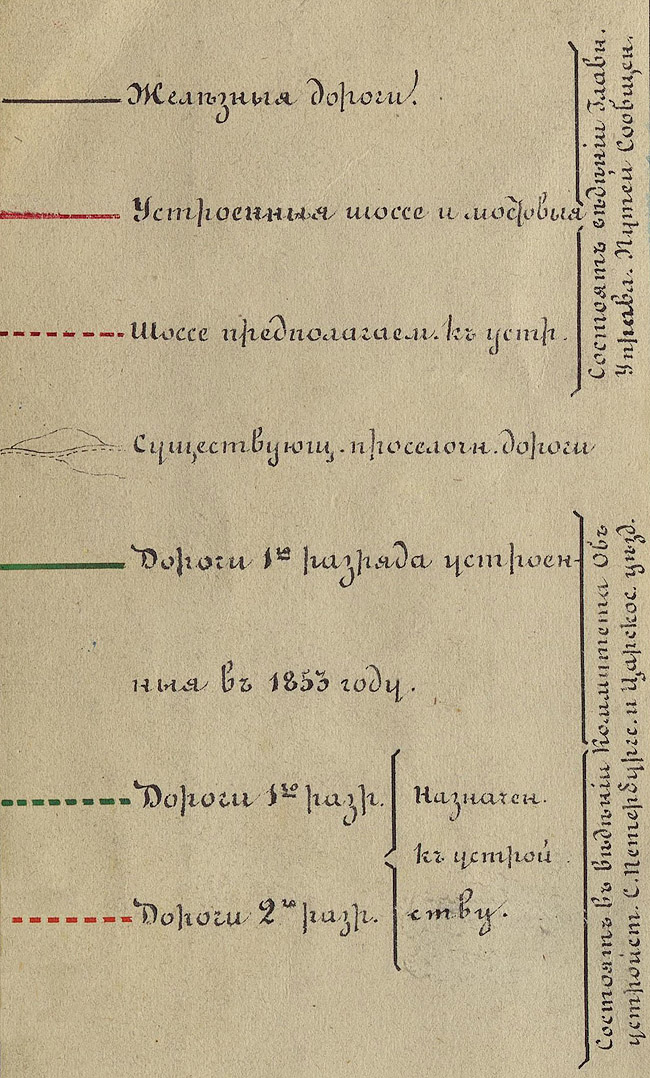 Желѣзныя дороги.
Устроенныя шоссе и мостовыя
Шоссе предполагаем. къ устр.
Состоятъ вѣдѣніи Главн.
Управл. Путей Сообщен.
Существующ. проселочн. дороги
Дороги 1го разряда устроен-
ныя въ 1853 году.
Дороги 1го разр.
Дороги 2го разр.
Назначен.
къ устрой
ству.
Состоятъ въ вѣдѣніи Комитета Объ
устройст. С. Петербургс. и Царскос. уѣзд.